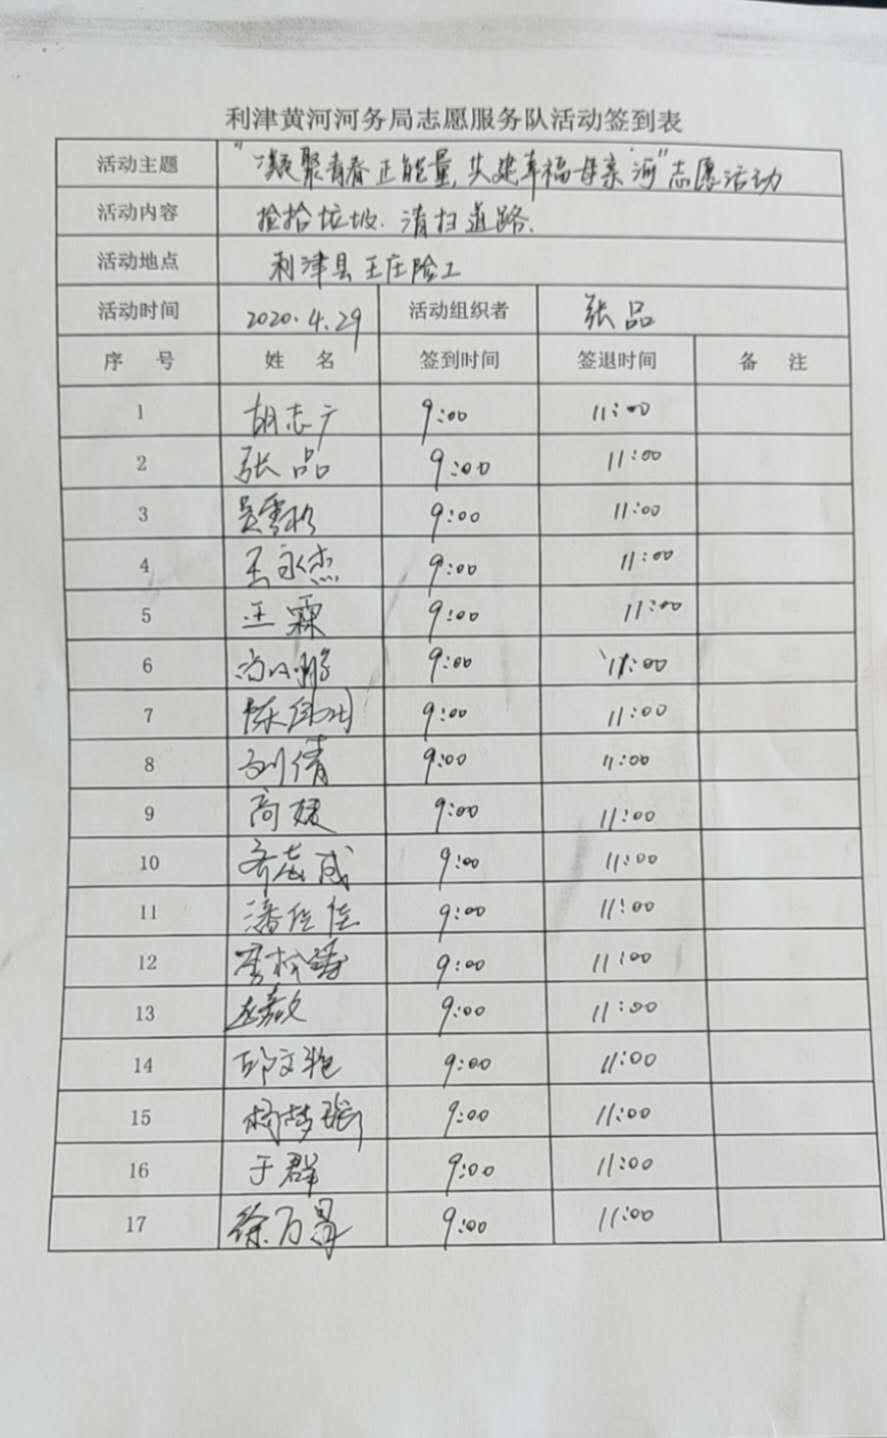 利津黄河河务局志愿服务队活动签到表
活动主题 "凝聚青春正能量,共建幸福母亲河"志愿活动
活动内容 捡拾垃圾.清扫道路.
活动地点 利津县王庄险工
活动时间 2020.4.29 活动组织者 张品
序 号 姓 名 签到时间 签退时间 备 注
1 胡志广 9:00 11:00
2 张品 9:00 11:00
3 9:00 11:00
4 王永杰 9:00 11:00
5 王霖 9:00 11:00
6 9:00 11:00
7 9:00 11:00
8 刘倩 9:00 11:00
9 9:00 11:00
10 齐志成 9:00 11:00
11 潘佳佳 9:00 11:00
12 9:00 11:00
13 9:00 11:00
14 9:00 11:00
15 9:00 11:00
16 于群 9:00 11:00
17 9:00 11:00